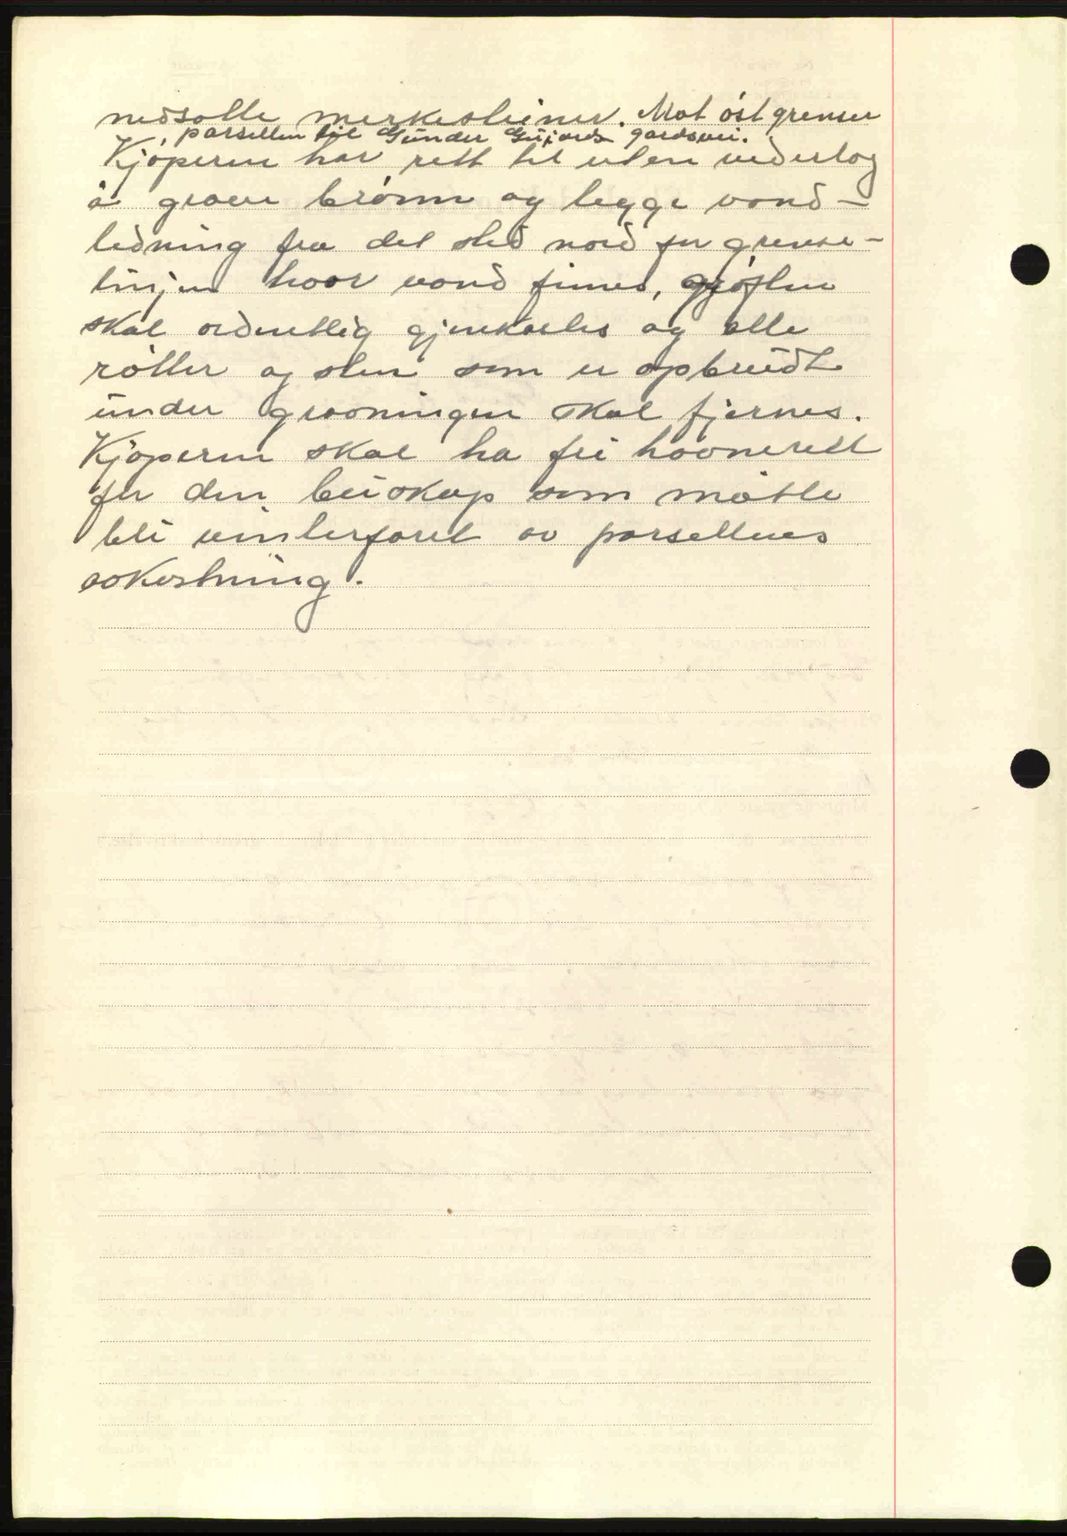 nedsatte merkesteiner. Mot öst grenser
parsellen til Gunder gardsvei.
Kjöperen har rett til uten vederlag
å grave brönn og legge vand-
ledning fra det sted nord for grense-
linjen hvor vand finnes, gröften
skal ordentlig gjenkastes og alle
rötter og sten som er opbrudt
under gravningen skal fjernes.
Kjöperen skal ha fri havnerett
for den buskap som måtte
bli vinterforet av parsellens
avkastning.